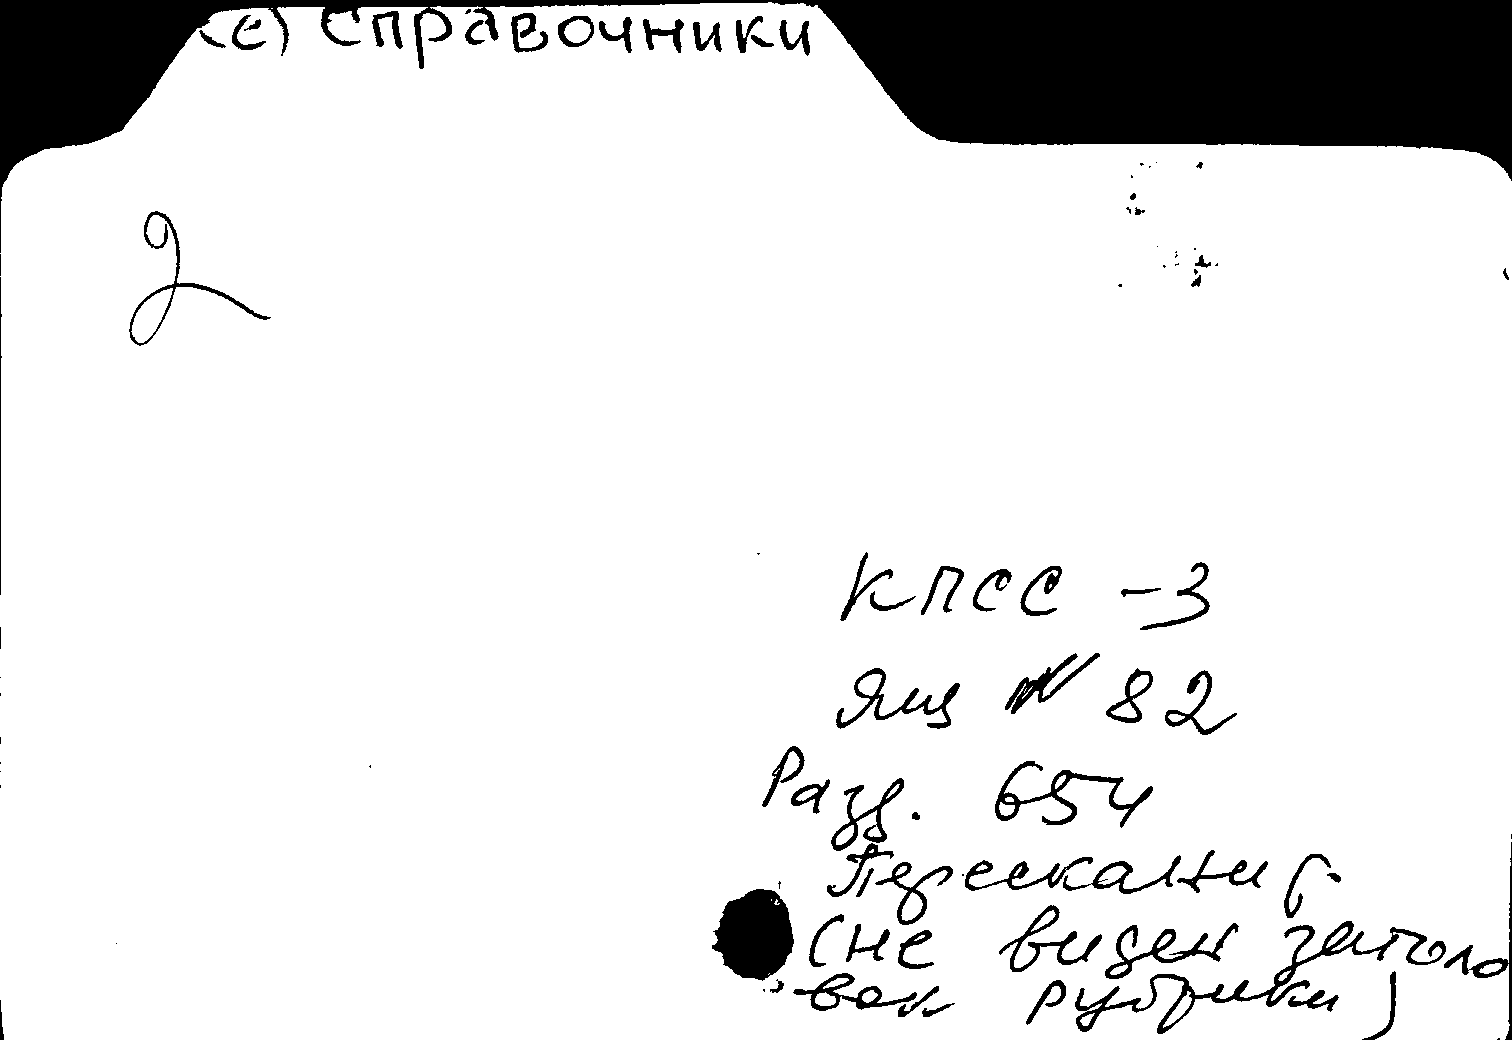 (е) Справочники
2
КПСС - 3
Ящ № 82
Разд. 654
Пересканир.
(не виден заголо
-вок рубрики)